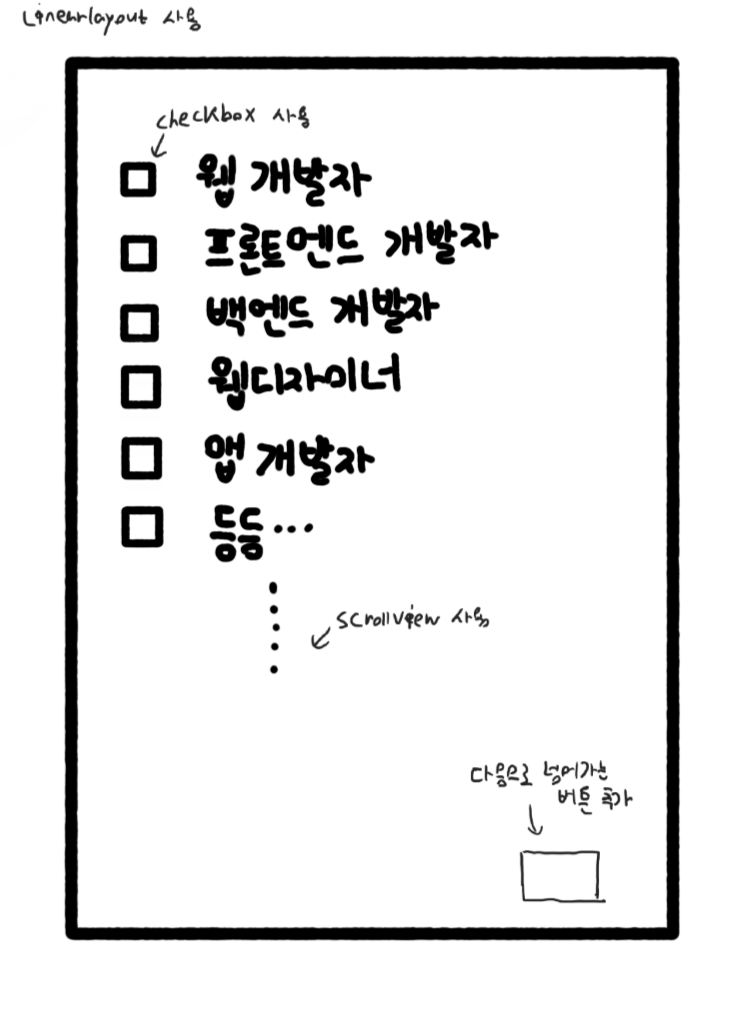 Linearlayout 사용
checkbox 사용
웹 개발자
프론트엔드 개발자
백엔드 개발자
웹디자이너
앱 개발자
등등...
scrollview 사용
다음으로 넘어가는
버튼 추가